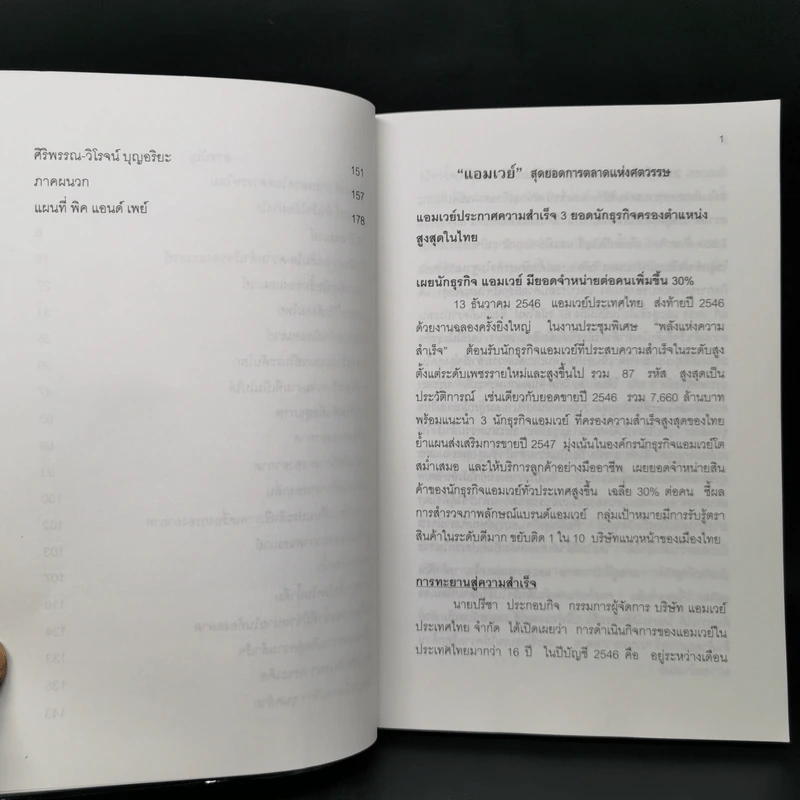 ศิริพรรณ-วิโรจน์ บุญอริยะ 151
ภาคผนวก 157
แผนที่ พิค แอนด์ เพย์ 178
1
“แอมเวย์” สุดยอดการตลาดแห่งศตวรรษ
แอมเวย์ประกาศความสำเร็จ 3 ยอดนักธุรกิจครองตำแหน่ง
สูงสุดในไทย
เผยนักธุรกิจ แอมเวย์ มียอดจำหน่ายต่อคนเพิ่มขึ้น 30%
13 ธันวาคม 2546 แอมเวย์ประเทศไทย ส่งท้ายปี 2546
ด้วยงานฉลองครั้งยิ่งใหญ่ ในงานประชุมพิเศษ “พลังแห่งความ
สำเร็จ” ต้อนรับนักธุรกิจแอมเวย์ที่ประสบความสำเร็จในระดับสูง
ตั้งแต่ระดับเพชรรายใหม่และสูงขึ้นไป รวม 87 รหัส สูงสุดเป็น
ประวัติการณ์ เช่นเดียวกับยอดขายปี 2546 รวม 7,660 ล้านบาท
พร้อมแนะนำ 3 นักธุรกิจแอมเวย์ ที่ครองความสำเร็จสูงสุดของไทย
ย้ำแผนส่งเสริมการขายปี 2547 มุ่งเน้นในองค์กรนักธุรกิจแอมเวย์โต
สม่ำเสมอ และให้บริการลูกค้าอย่างมืออาชีพ เผยยอดจำหน่ายสิน
ค้าของนักธุรกิจแอมเวย์ทั่วประเทศสูงขึ้น เฉลี่ย 30% ต่อคน ชี้ผล
การสำรวจภาพลักษณ์แบรนด์แอมเวย์ กลุ่มเป้าหมายมีการรับรู้ตรา
สินค้าในระดับดีมาก ขยับติด 1 ใน 10 บริษัทแนวหน้าของเมืองไทย
การทะยานสู่ความสำเร็จ
นายปรีชา ประกอบกิจ กรรมการผู้จัดการ บริษัท แอมเวย์
ประเทศไทย จำกัด ได้เปิดเผยว่า การดำเนินกิจการของแอมเวย์ใน
ประเทศไทยมากว่า 16 ปี ในปีบัญชี 2546 คือ อยู่ระหว่างเดือน